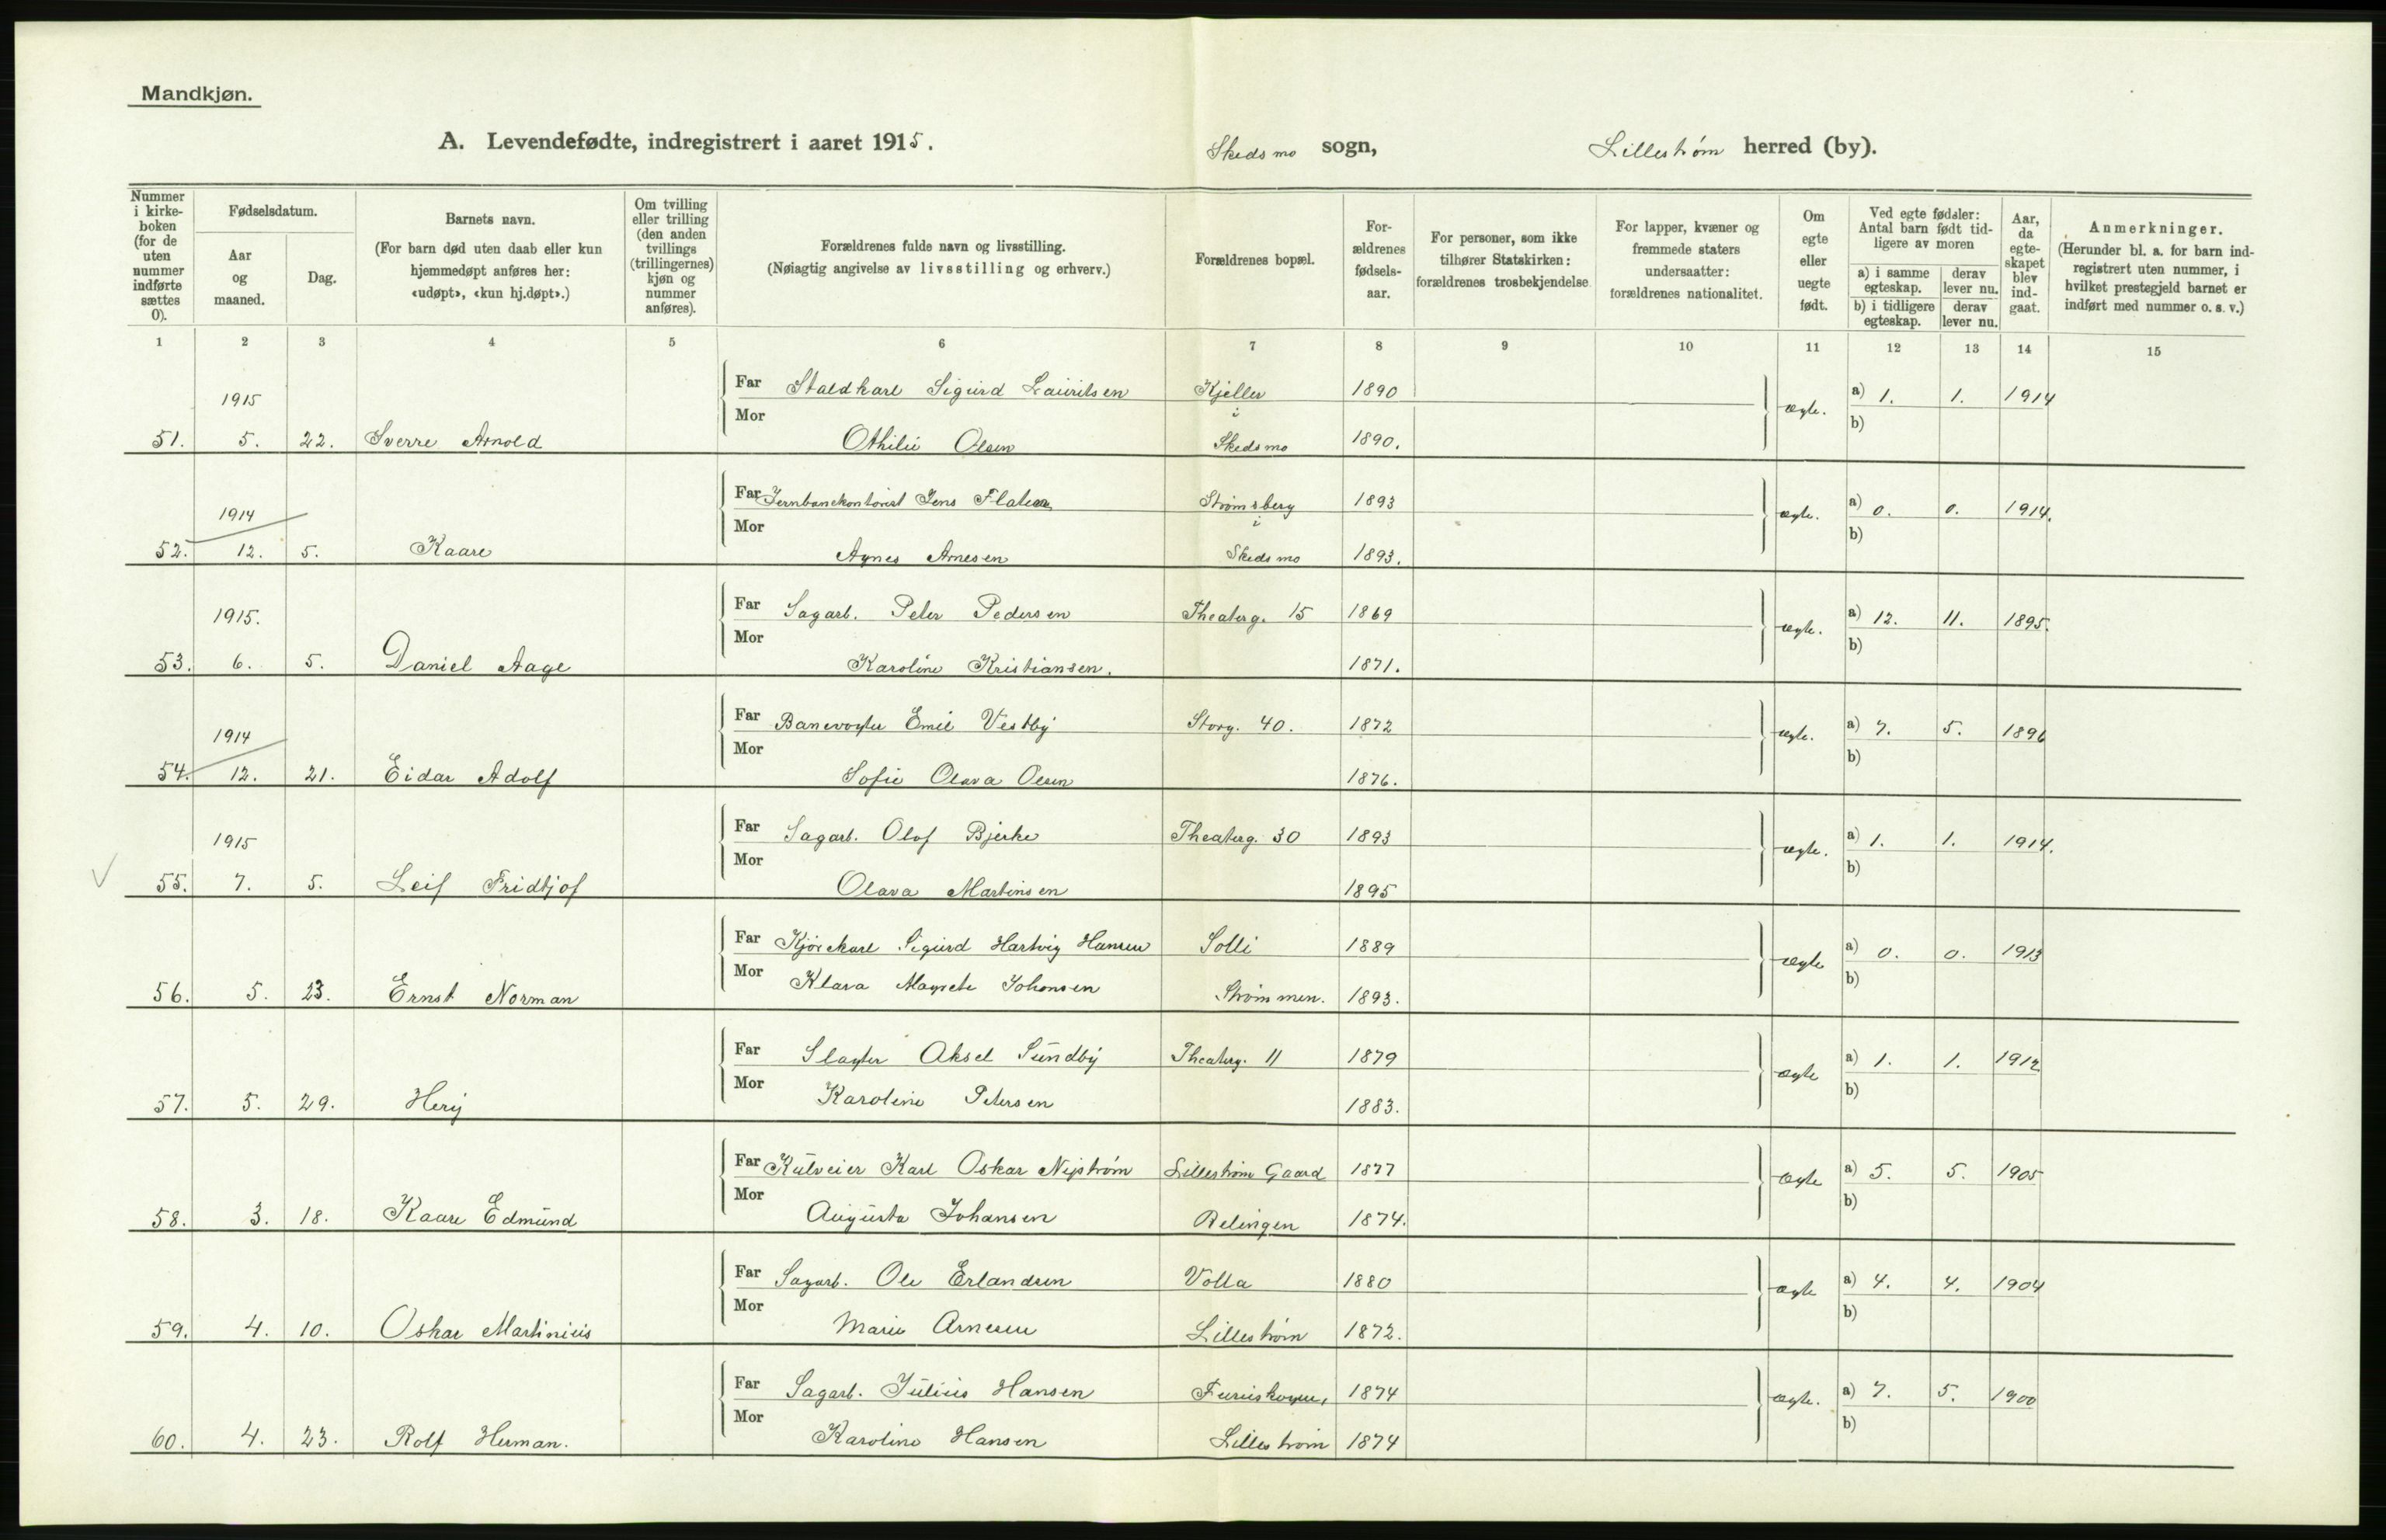 Mandkjøn.
A. Levendefødte, indregistrert i aaret 1915. Skedsmo sogn, Lillestrøm herred (by).
Nummer i kirke-boken (for de uten nummer indførte sættes 0).
Fødselsdatum.
Aar og maaned.
Dag.
Barnets navn.
(For barn død uten daab eller kun hjemmedøpt anføres her: «udøpt», «kun hj.døpt».)
Om tvilling eller trilling (den anden tvillings (trillingernes) kjøn og nummer anføres).
Forældrenes fulde navn og livsstilling.
(Nøiagtig angivelse av livsstilling og erhverv.)
Forældrenes bopæl.
For-ældrenes fødsels-aar.
For personer, som ikke tilhører Statskirken: forældrenes trosbekjendelse.
For lapper, kvæner og fremmede staters undersaatter: forældrenes nationalitet.
Om egte eller uegte født.
Ved egte fødsler: Antal barn født tid-ligere av moren
a) i samme egteskap. derav lever nu.
b) i tidligere egteskap. derav lever nu.
Aar, da egte-skapet blev ind-gaat.
Anmerkninger.
(Herunder bl. a. for barn ind-registrert uten nummer, i hvilket prestegjeld barnet er indført med nummer o. s. v.)
1 2 3 4 5 6 7 8 9 10 11 12 13 14 15
1915 Far Staldkarl Sigurd Lauritsen Kjeller 1890 ægte. a) 1. 1. 1914
51. 5. 22. Sverre Arnold Mor Othilie Olsen i Skedsmo 1890. b)
1914 Far Jernbanekontorist Jens Flateu Strømsberg 1893 ægte. a) 0. 0. 1914.
52. 12. 5. Kaare Mor Agnes Arnesen i Skedsmo 1893. b)
1915. Far Sagarb. Peter Pedersen Theaterg. 15 1869 ægte. a) 12. 11. 1895.
53. 6. 5. Daniel Aage Mor Karoline Kristiansen. 1871. b)
1914 Far Banevogter Emil Vestby Storg. 40. 1872 ægte. a) 7. 5. 1896
54. 12. 21. Eidar Adolf Mor Sofie Olava Olsen 1876. b)
1915 Far Sagarb. Olof Bjerke Theaterg. 30 1893 ægte. a) 1. 1. 1914.
55. 7. 5. Leif Fridtjof Mor Olava Martinsen 1895 b)
Far Kjørekarl Sigurd Hartvig Hansen Solli 1889 ægte a) 0. 0. 1913
56. 5. 23. Ernst Norman Mor Klara Magrete Johansen Strømmen. 1893. b)
Far Slagter Aksel Sundby Theaterg. 11 1879 ægte a) 1. 1. 1912
57. 5. 29. Mor Karoline Petersen 1883. b)
Far Kulveier Karl Oskar Nystrøm Lillestrøm Gaard 1877 ægte a) 5. 5. 1905
58. 3. 18. Kaare Edmund Mor Augusta Johansen Relingen 1874. b)
Far Sagarb. Ole Erlandsen Volla 1880 ægte a) 4. 4. 1904
59. 4. 10. Oskar Martinius Mor Marie Arnesen Lillestrøm 1872. b)
Far Sagarb. Julius Hansen 1874 ægte. a) 7. 5. 1900
60. 4. 23. Rolf Herman. Mor Karoline Hansen Lillestrøm 1874 b)